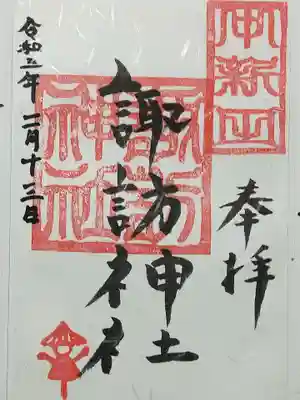 奉拝
諏訪神社
諏訪
神社
令和二年 二月十三日